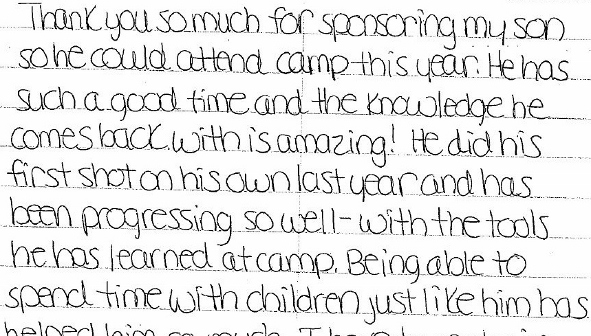 Thank you so much for sponsoring my son
so he could attend camp this year. He has
such a good time and the knowledge he
comes back with is amazing! He did his
first shot on his own last year and has
been progressing so well - with the tools
he has learned at camp. Being able to
spend time with children just like him has
helped him so much.